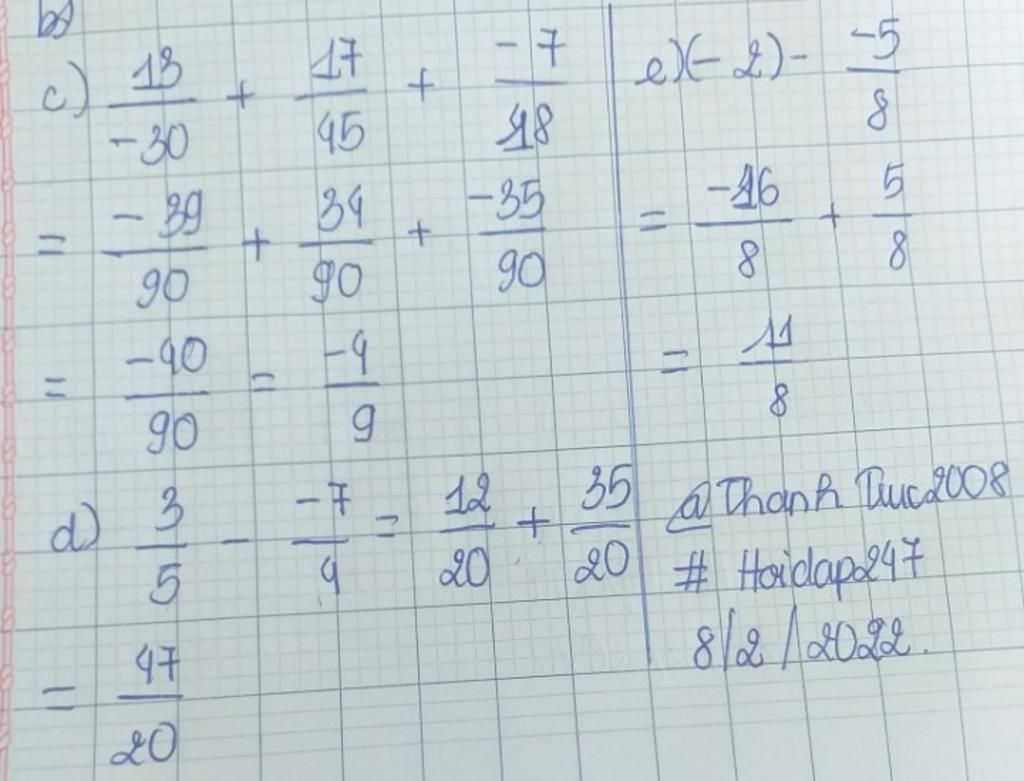 b)
c) 13/-30 + 17/45 + -7/18
= -39/90 + 34/90 + -35/90
= -40/90 = -4/9
d) 3/5 - -7/4 = 12/20 + 35/20
= 47/20
e) (-2) - -5/8
= -16/8 + 5/8
= 11/8
@Thanh Truc2008
# Hoidap247
8/2/2022.